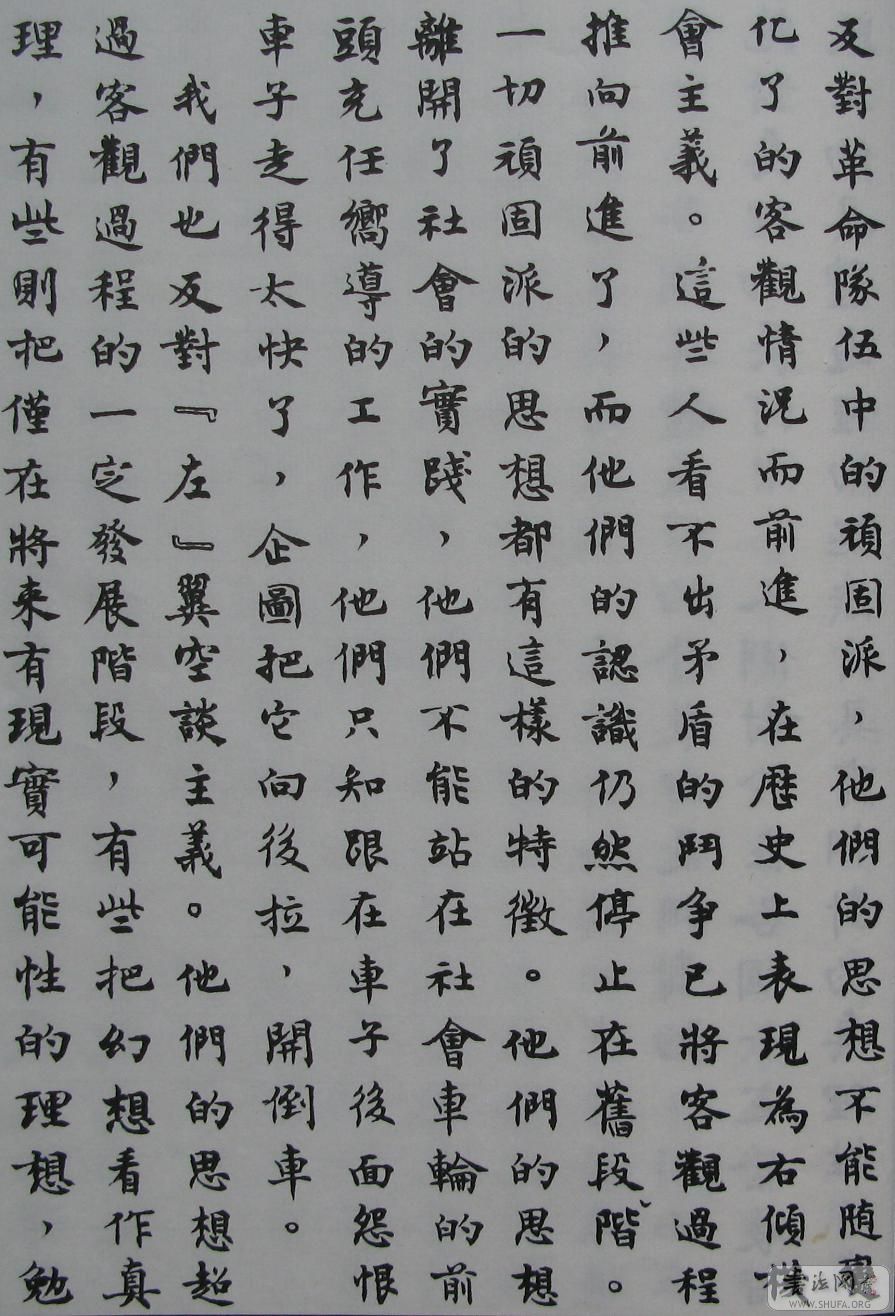 反對革命隊伍中的頑固派，他們的思想不能随變
化了的客觀情況而前進，在歷史上表現為右傾機
會主義。這些人看不出矛盾的鬥争已將客觀過程
推向前進了，而他們的認識仍然停止在舊段階。
一切頑固派的思想都有這樣的特徵。他們的思想
離開了社會的實踐，他們不能站在社會車輪的前
頭充任嚮導的工作，他們只知跟在車子後面怨恨
車子走得太快了，企圖把它向後拉，開倒車。
我們也反對『左』翼空談主義。他們的思想超
過客觀過程的一定發展階段，有些把幻想看作真
理，有些則把僅在將来有現實可能性的理想，勉
书法网
WWW.SHUFA.ORG